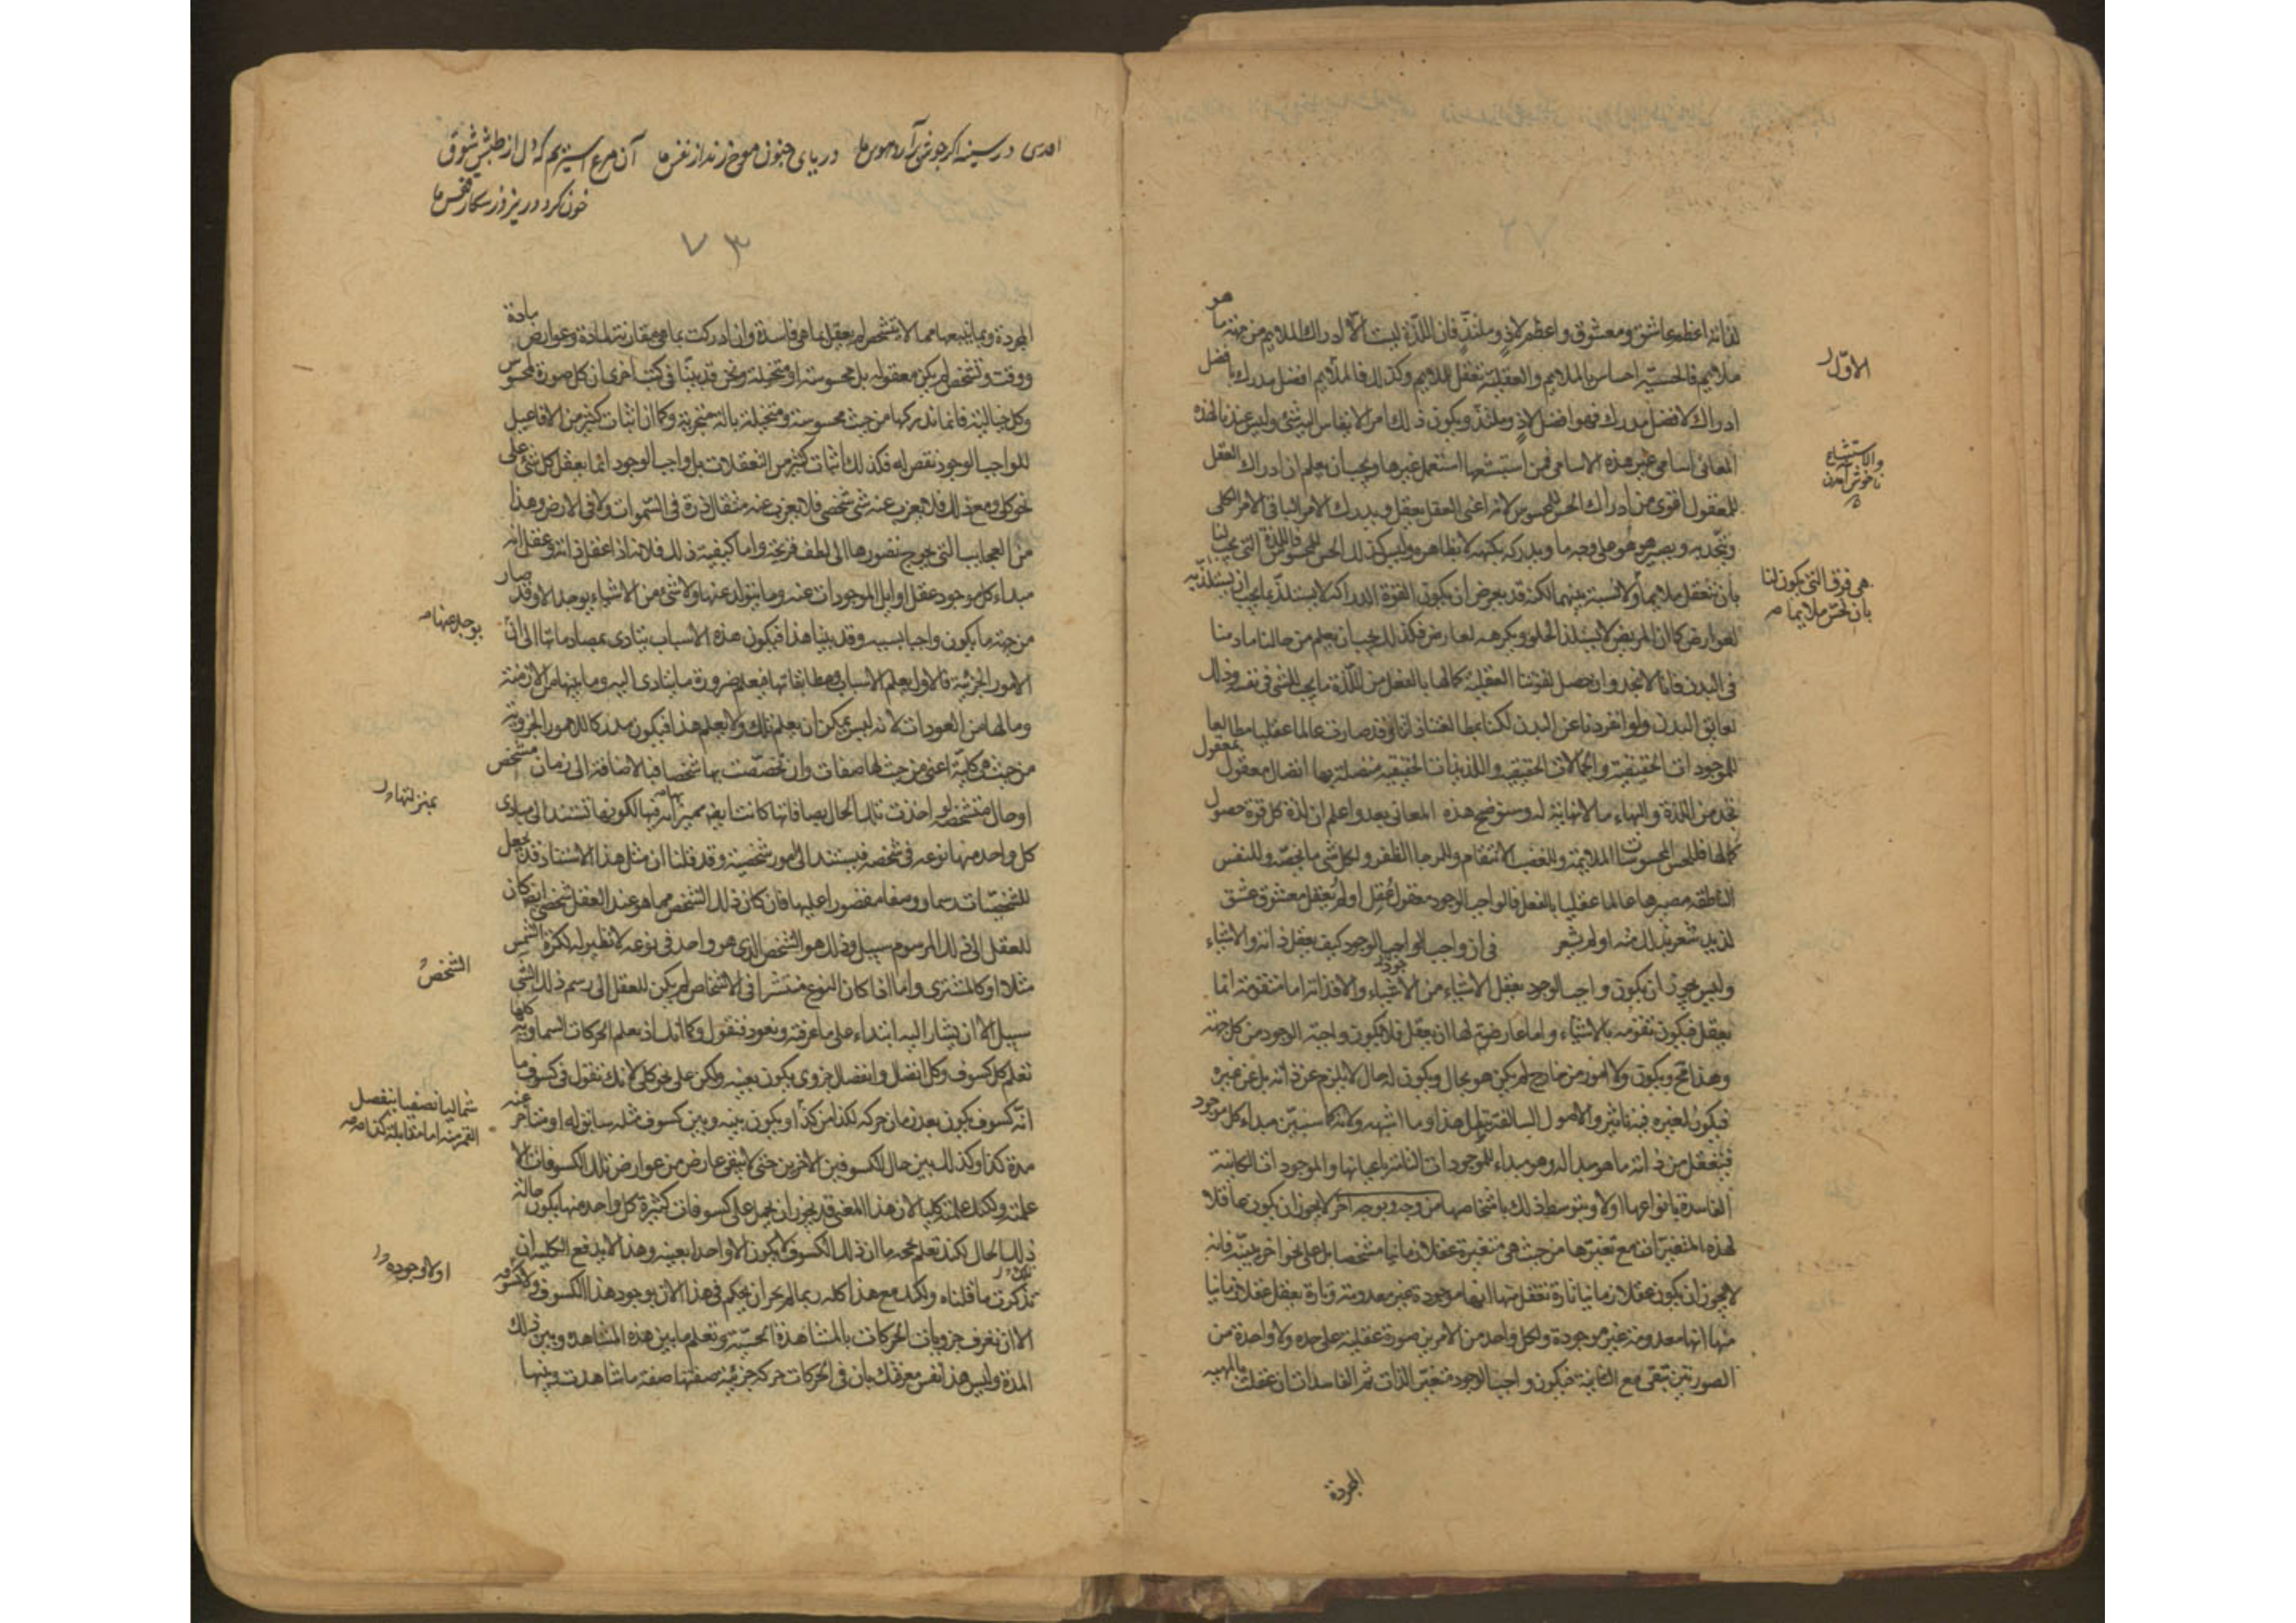 لذاته اعظم عاشق ومعشوق واعظم لاذ وملتذ فان اللذة ليست الا ادراك الملايم من جهة ما هو
ملايم فالحسية احساس بالملايم والعقلية تعقل الملايم وكذلك فالملايم افضل مدرك بافضل
الاول
ادراك لافضل مدرك فهو افضل لاذ وملتذ ويكون ذلك امر لا يقاس اليه شئ وليس عندنا لهذه
المعانى اسامى غير هذه الاسامى فمن استبشعها استعمل غيرها ويجب ان يعلم ان ادراك العقل
والاستبشاع
ناخوش آمدن
للمعقول اقوى من ادراك الحس للمحسوس لانه اعنى العقل يعقل ويدرك الامر الباقى الامر الكلى
ويتحد به ويصير هو هو على وجه ما ويدركه بكنهه لا بظاهره وليس كذلك الحس للمحسوس فاللذة التى تجب لنا
هى فوق التى يكون لنا
بان نحس ملايما
بان نتعقل ملايما ولا نسبة بينهما لكنه قد يعرض ان يكون القوة الدراكة لا يستلذ بما يجب ان يستلذ به
لعوارض كما ان المريض لا يستلذ الحلو ويكرهه لعارض فكذلك يجب ان يعلم من حالنا ما دمنا
فى البدن فانا لا نجد وان حصل لقوتنا العقلية كمالها بالفعل من اللذة ما يجب للشئ فى نفسه وذلك
لعايق البدن ولو انفردنا عن البدن لكنا بمطالعتنا ذاتنا وقد صارت عالما عقليا مطالعا
للموجودات الحقيقية والجمالات الحقيقية واللذيذات الحقيقية متصلة بها اتصال معقول بمعقول
نجد من اللذة والبهاء ما لا نهاية له وسنوضح هذه المعانى بعد واعلم ان لذة كل قوة حصول
كمالها فللحس المحسوسات الملايمة وللغضب الانتقام وللرجا الظفر ولكل شى ما يخصه وللنفس
الناطقة مصيرها عالما عقليا بالفعل فالواجب الوجود معقول عُقل او لم يُعقل معشوق عشق
لذيذ شعر بذلك منه او لم يشعر فى ان واجب الوجود كيف يعقل ذاته والاشياء
وليس يجوز ان يكون واجب الوجود يعقل الاشياء من الاشياء والا فذاته اما متقومة بما
يعقل فيكون تقومه بالاشياء واما عارض لها ان يعقل فلا يكون واجبة الوجود من كل جهة
وهذا مح ويكون ولا امور من خارج لم يكن هو بحال ويكون له حال لا يلزم عن ذاته بل عن غيره
فيكون لغيره فيه تاثير والاصول السالفة تبطل هذا وما اشبهه ولانه كما سنبين مبداء كل موجود
فيعقل من ذاته ما هو مبدا له وهو مبداء للموجودات التامة باعيانها والموجودات الكاينة
الفاسدة بانواعها اولا وبتوسط ذلك باشخاصها من وجه وبوجه اخر لا يجوز ان يكون عاقلا
لهذه المتغيرات مع تغيرها من حيث هى متغيرة عقلا زمانيا مشخصا بل على نحو اخر نبينه فانه
لا يجوز ان يكون عقلا زمانيا تارة تعقل منها انها موجودة غير معدومة وتارة يعقل عقلا زمانيا
منها انها معدومة غير موجودة ولكل واحد من الامرين صورة عقلية على حده ولا واحدة من
الصورتين تبقى مع الثانية فيكون واجب الوجود متغير الذات ثم الفاسدات ان عقلت بالمهية
المجردة
در سينه اكر جوش برآرد هوس ما درياى جنون موج زند از نفس ما آن مرغ اسيريم كه دل از طپش شوق
خون كرد و ريز قفس ما
۷۳
المجردة وبما يتبعها مما لا يتشخص لم يعقل بما هى فاسدة وان ادركت بما هى مقارنة لمادة وعوارض مادة
ووقت وتشخص لم يكن معقولة بل محسوسة او متخيلة ونحن قد بينا فى كتب اخرى ان كل صورة لمحسوس
وكل خيالية فانما ندركها من حيث محسوسة ومتخيلة بالة متجزية وكما ان اثبات كثير من الافاعيل
للواجب الوجود نقص له فكذلك اثبات كثير من التعقلات بل واجب الوجود انما يعقل كل شئ على
نحو كلى ومع ذلك فلا يعزب عنه شى شخصى فلا يعزب عنه مثقال ذرة فى السموات ولا فى الارض وهذا
من العجايب التى يحوج تصورها الى لطف قريحة واما كيفية ذلك فلانه اذا عقل ذاته وعقل انه
مبداء كل موجود عقل اوايل الموجودات عنه وما يتولد عنها ولا شئ من الاشياء يوجد الا وقد صار
يوجد عنها
من جهة ما يكون واجبا بسببه وقد بينا هذا فيكون هذه الاسباب يتادى بمصادماتها الى ان
الامور الجزئية فالاول يعلم الاسباب ومطابقاتها فيعلم ضرورة ما يتادى اليه وما بينها من الازمنة
وما لها من العودات لانه ليس يمكن ان يعلم تلك ولا يعلم هذا فيكون مدركا للامور الجزوية
من حيث هى كلية اعنى من حيث لها صفات وان تخصصت بها شخصا فبالاضافة الى زمان متشخص
بمنزلتها
او حال متشخصة لو اخذت تلك الحال بصفاتها كانت ايضا لكونها تستند الى مبادى
كل واحد منها نوعه فى شخصه فيستند الى امور شخصية وقد قلنا ان مثل هذا الاستناد قد يجعل
للشخصيات رسما ووصفا مقصورا عليها فان كان ذلك الشخص مما هو عند العقل شخصى ايضا كان
للعقل الى ذلك المرسوم سبيل وذلك هو الشخص الذى هو واحد فى نوعه لا نظير له ككرة الشمس
الشخص
مثلا او كالمشترى واما اذا كان النوع منتشرا فى الاشخاص لم يكن للعقل الى رسم ذلك الشى
سبيل الا ان يشار اليه ابتداء على ما عرفته ونعود فنقول وكما انك اذ يعلم الحركات السماوية كلها
تعلم كل كسوف وكل اتصال وانفصال جزوى يكون بعينه ولكن على نحو كلى لانك تقول فى كسوف ما
شماليا نصفيا ينفصل
القمر منه الى مقابلة كذا
انه كسوف يكون بعد زمان حركة لكذا من كذا ويكون بينه وبين كسوف مثله سابق له او متاخر عنه
مدة كذا وكذلك بين حال الكسوفين الاخرين حتى لا يبقى عارض من عوارض تلك الكسوفات الا
علمته ولكنك علمته كليا لان هذا المعنى قد يجوز ان يحمل على كسوفات كثيرة كل واحد منها يكون حاله
تلك الحال لكنك تعلم بحجة ما ان ذلك الكسوف لا يكون الا واحدا بعينه وهذا لا يدفع الكلية ان
اولا وجوده
تذكرت ما قلناه ولكنك مع هذا كله ربما لم يجز ان يحكم فى هذا الان بوجود هذا الكسوف
الا ان تعرف جزويات الحركات بالمشاهدة الحسية وتعلم ما بين هذه المشاهدة وبين ذلك
المدة وليس هذا نفس معرفتك بان فى الحركات حركة جزئية صفتها صفة ما شاهدت وبينها